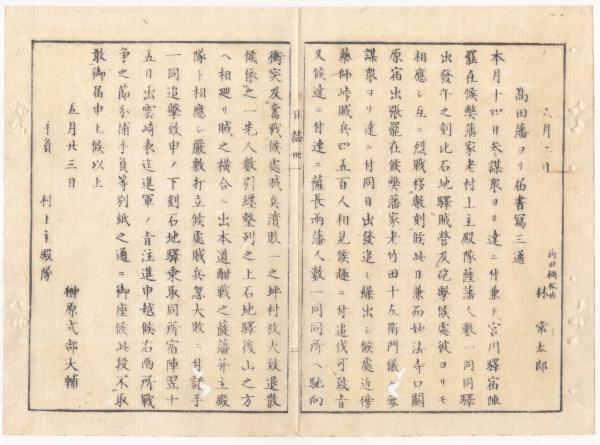 前田桐松内
林常太郎
六月二日
高田藩ヨリ届書寫三通
本月十四日参謀衆ヨリ達ニ付兼テ宮川驛宿陣
罷在候弊藩家老村上主殿隊薩藩人數一同同驛
出發午之刻比石地驛賊營及砲擊候處彼ヨリモ
相應シ互ニ烈戰移數刻候此日兼而妙法寺口關
原宿出張罷在候弊藩家老竹田十左衛門儀モ参
謀衆ヨリ達ニ付同日出發追々繰出シ候處近傍
藥師峠賊兵四五百人相見候趣ニ付追伐可致旨
又候達ニ付達ニ薩長兩藩人數一同同所ヘ馳向
日誌卅
二
衝突及奮戰候處賊兵潰敗一之坪村放火致退散
候依之一先人數引纏整列之上石地驛後山之方
ヘ相廻リ賊之橫合ニ出本道酣戰之薩藩并主殿
隊ト相應シ嚴敷打立候處賊兵忽大敗ニ付諸手
一同追擊致申ノ下刻石地驛乘取同所宿陣翌十
五日出雲崎表迄進軍ノ旨注進申越候右兩所戰
争之節分捕手負等別紙之通ニ御座候此段不取
敢御届申上候以上
五月廿三日
榊原式部大輔
手負
村上主殿隊